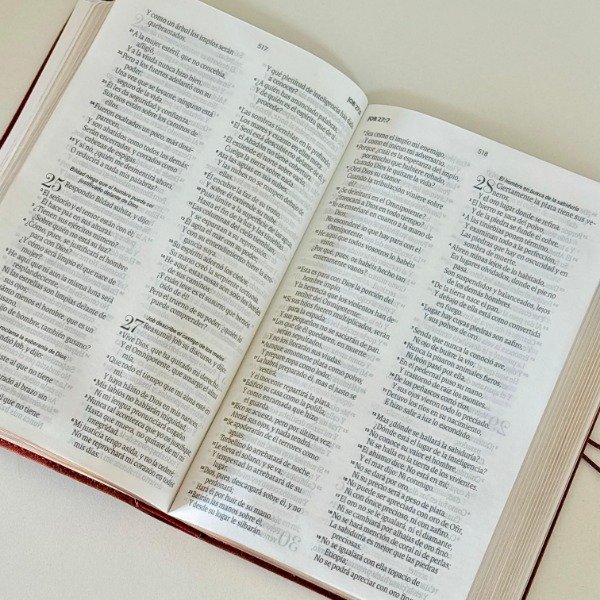 Y como un árbol los impíos serán
quebrantados.
A la mujer estéril, que no concebía
afligió,
Y a la viuda nunca hizo bien.
Pero a los fuertes adelantó con su
poder;
Una vez que se levante, ninguno está
Él les da seguridad y confianza;
Sus ojos están sobre los caminos de
ellos.
Fueron exaltados un poco, mas desa-
Y son abatidos como todos los demás;
Serán encerrados, y cortados como
cabezas de espigas.
O reducirá a nada mis palabras?
25
Respondió Bildad suhita, y dijo:
El señorío y el temor están con él;
Él hace paz en sus alturas.
¿Tienen sus ejércitos número?
¿Sobre quién no está su luz?
¿Cómo, pues, se justificará el hombre
¿Y cómo será limpio el que nace de
mujer?
He aquí que ni aun la misma luna será
Ni las estrellas son limpias delante de
517
Y qué plenitud de inteligencia has
a conocer?
¿A quién has anunciado palabras,
¿Y de quién es el espíritu que de ti
procede?
Las sombras tiemblan en lo profundo,
Los mares y cuanto en ellos mora.
El Seol está descubierto delante de él, y
el Abadón no tiene cobertura.
Él extiende el norte sobre vacío,
Cuelga la tierra sobre nada.
Ata las aguas en sus nubes,
Y las nubes no se rompen debajo de
ellas.
Él encubre la faz de su trono,
Y sobre él extiende su nube.
Puso límite a la superficie de las aguas,
Hasta el fin de la luz y las tinieblas.
Las columnas del cielo tiemblan,
Y se espantan a su reprensión.
Él agita el mar con su poder,
Y con su entendimiento
Su espíritu adornó los cielos;
Su mano creó la serpiente tortuosa.
He aquí, estas cosas son sólo los bordes
de sus caminos;
¡Y cuán leve es el susurro que hemos
oído de él!
Pero el trueno de su poder, ¿quién lo
puede comprender?
Job describe el castigo de los malos
27
Reasumió Job su discurso, y dijo:
Vive Dios, que ha quitado mi derecho,
Y el Omnipotente, que amargó el alma
mía,
Que todo el tiempo que mi alma esté en
mí,
Y haya hálito de Dios en mis narices,
Mis labios no hablarán iniquidad,
Ni mi lengua pronunciará engaño.
Nunca tal acontezca que yo os justifique;
Hasta que muera, no quitaré de mí mi
integridad.
Mi justicia tengo asida, y no la cederé;
No me reprochará mi corazón en todos
mis días.
JOB 27:7
518
Sea como el impío mi enemigo,
Y como el inicuo mi adversario.
Porque ¿cuál es la esperanza del impío,
por mucho que hubiere robado,
Cuando Dios le quitare la vida?
¿Oirá Dios su clamor
Cuando la tribulación viniere sobre él?
¿Se deleitará en el Omnipotente?
¿Invocará a Dios en todo tiempo?
Yo os enseñaré en cuanto a la mano de
Dios;
No esconderé lo que hay para con el
Omnipotente.
He aquí que todos vosotros lo habéis
visto;
¿Por qué, pues, os habéis hecho tan
enteramente vanos?
Esta es para con Dios la porción del
hombre impío,
Y la herencia que los violentos han de
recibir del Omnipotente:
Si sus hijos fueren multiplicados, serán
para la espada;
Y sus pequeños no se saciarán de pan.
Los que de él quedaren, en muerte
serán sepultados,
Y no los llorarán sus viudas.
Aunque amontone plata como polvo,
Y prepare ropa como lodo;
La habrá preparado él, mas el justo se
vestirá,
Y el inocente repartirá la plata.
Edificó su casa como la polilla,
Y como enramada que hizo el guarda.
Rico se acuesta, pero por última vez;
Abrirá sus ojos, y nada tendrá.
Se apoderarán de él terrores como
aguas;
Torbellino lo arrebatará de noche.
Le eleva el solano, y se va;
Y tempestad lo arrebatará de su
lugar.
Dios, pues, descargará sobre él, y no
perdonará;
Hará él por huir de su mano.
Batirán las manos sobre él,
Y desde su lugar le silbarán.
El hombre en busca de la sabiduría
28
Ciertamente la plata tiene sus ve-
neros,
Y el oro lugar donde se refina.
El hierro se saca del polvo,
Y de la piedra se funde el cobre.
A las tinieblas ponen término,
Y examinan todo a la perfección,
Las piedras que hay en oscuridad y en
sombra de muerte.
Abren minas lejos de lo habitado,
En lugares olvidados, donde el pie no
pasa.
Son suspendidos y balanceados, lejos
de los demás hombres.
De la tierra nace el pan,
Y debajo de ella está como convertida
en fuego.
Lugar hay cuyas piedras son zafiro,
Y sus polvos de oro.
Senda que nunca la conoció ave,
Ni ojo de buitre la vio;
Nunca la pisaron animales fieros,
Ni león pasó por ella.
En el pedernal puso su mano,
Y trastornó de raíz los montes.
De los peñascos cortó ríos,
Y sus ojos vieron todo lo preciado.
Detuvo los ríos en su nacimiento,
E hizo salir a luz lo escondido.
Mas ¿dónde se hallará la sabiduría?
¿Dónde está el lugar de la inteligencia?
No conoce su valor el hombre,
Ni se halla en la tierra de los vivientes.
El abismo dice: No está en mí;
Y el mar dijo: Ni conmigo.
No se dará por oro,
Ni su precio será a peso de plata.
No puede ser apreciada con oro de Ofir,
Ni con ónice precioso, ni con zafiro.
El oro no se le igualará, ni el diamante,
Ni se cambiará por alhajas de oro fino.
No se hará mención de coral ni de perlas;
La sabiduría es mejor que las piedras
preciosas.
No se igualará con ella topacio de
Etiopía;
No se podrá apreciar con oro fino